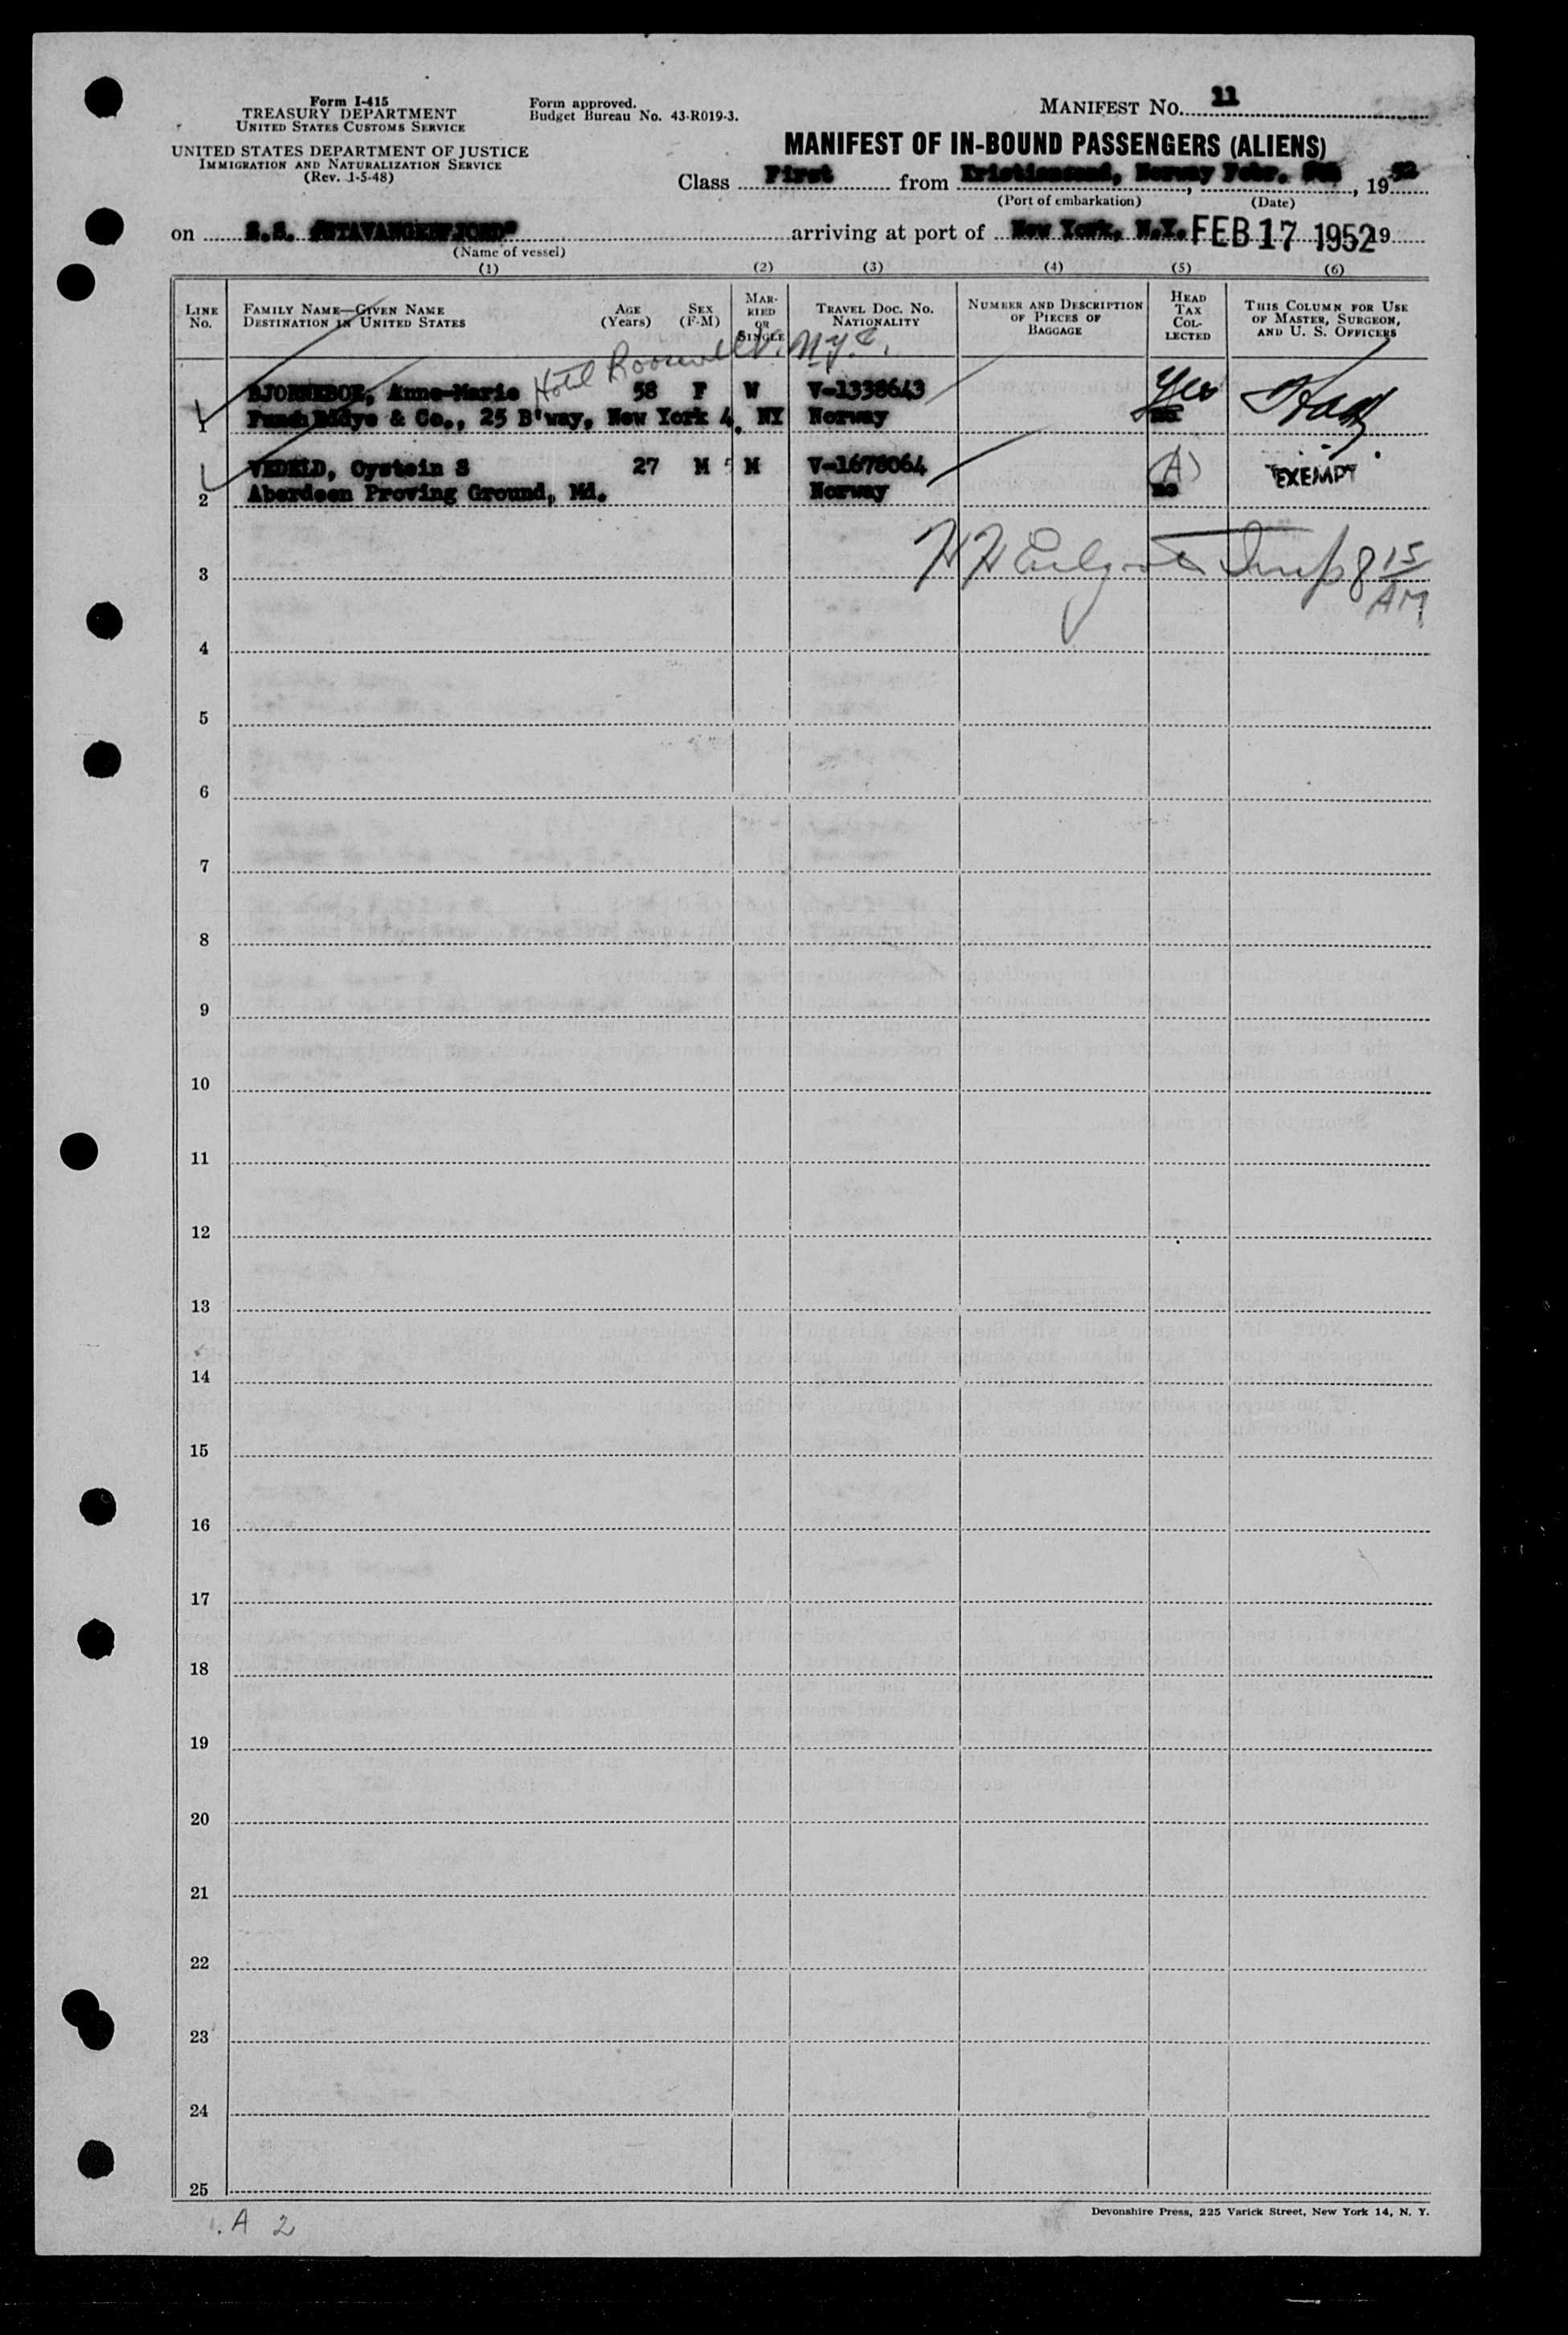 Form I-415
TREASURY DEPARTMENT
UNITED STATES CUSTOMS SERVICE
UNITED STATES DEPARTMENT OF JUSTICE
IMMIGRATION AND NATURALIZATION SERVICE
(Rev. 1-5-48)
Form approved.
Budget Bureau No. 43-R019-3.
MANIFEST NO. 11
MANIFEST OF IN-BOUND PASSENGERS (ALIENS)
Class First from Kristiansand, Norway Febr. , 1952
(Port of embarkation) (Date)
on S.S. "STAVANGERFJORD" arriving at port of New York, N.Y. FEB 17 1952 19
(Name of vessel)
(1) (2) (3) (4) (5) (6)
LINE No. FAMILY NAME—GIVEN NAME DESTINATION IN UNITED STATES AGE (Years) SEX (F-M) MARRIED OR SINGLE TRAVEL DOC. NO. NATIONALITY NUMBER AND DESCRIPTION OF PIECES OF BAGGAGE HEAD TAX COLLECTED THIS COLUMN FOR USE OF MASTER, SURGEON, AND U. S. OFFICERS
Hotel Roosevelt. N.Y.C.
BJORNEBOE, Anne-Marie 58 F W V-1338643 Yes
1 Funch Edye & Co., 25 B'way, New York 4, NY Norway
VEDELD, Oystein S 27 M M V-1678064 (A) EXEMPT
2 Aberdeen Proving Ground, Md. Norway no
8 15 AM
3
4
5
6
7
8
9
10
11
12
13
14
15
16
17
18
19
20
21
22
23
24
25
Devonshire Press, 225 Varick Street, New York 14, N. Y.
A 2